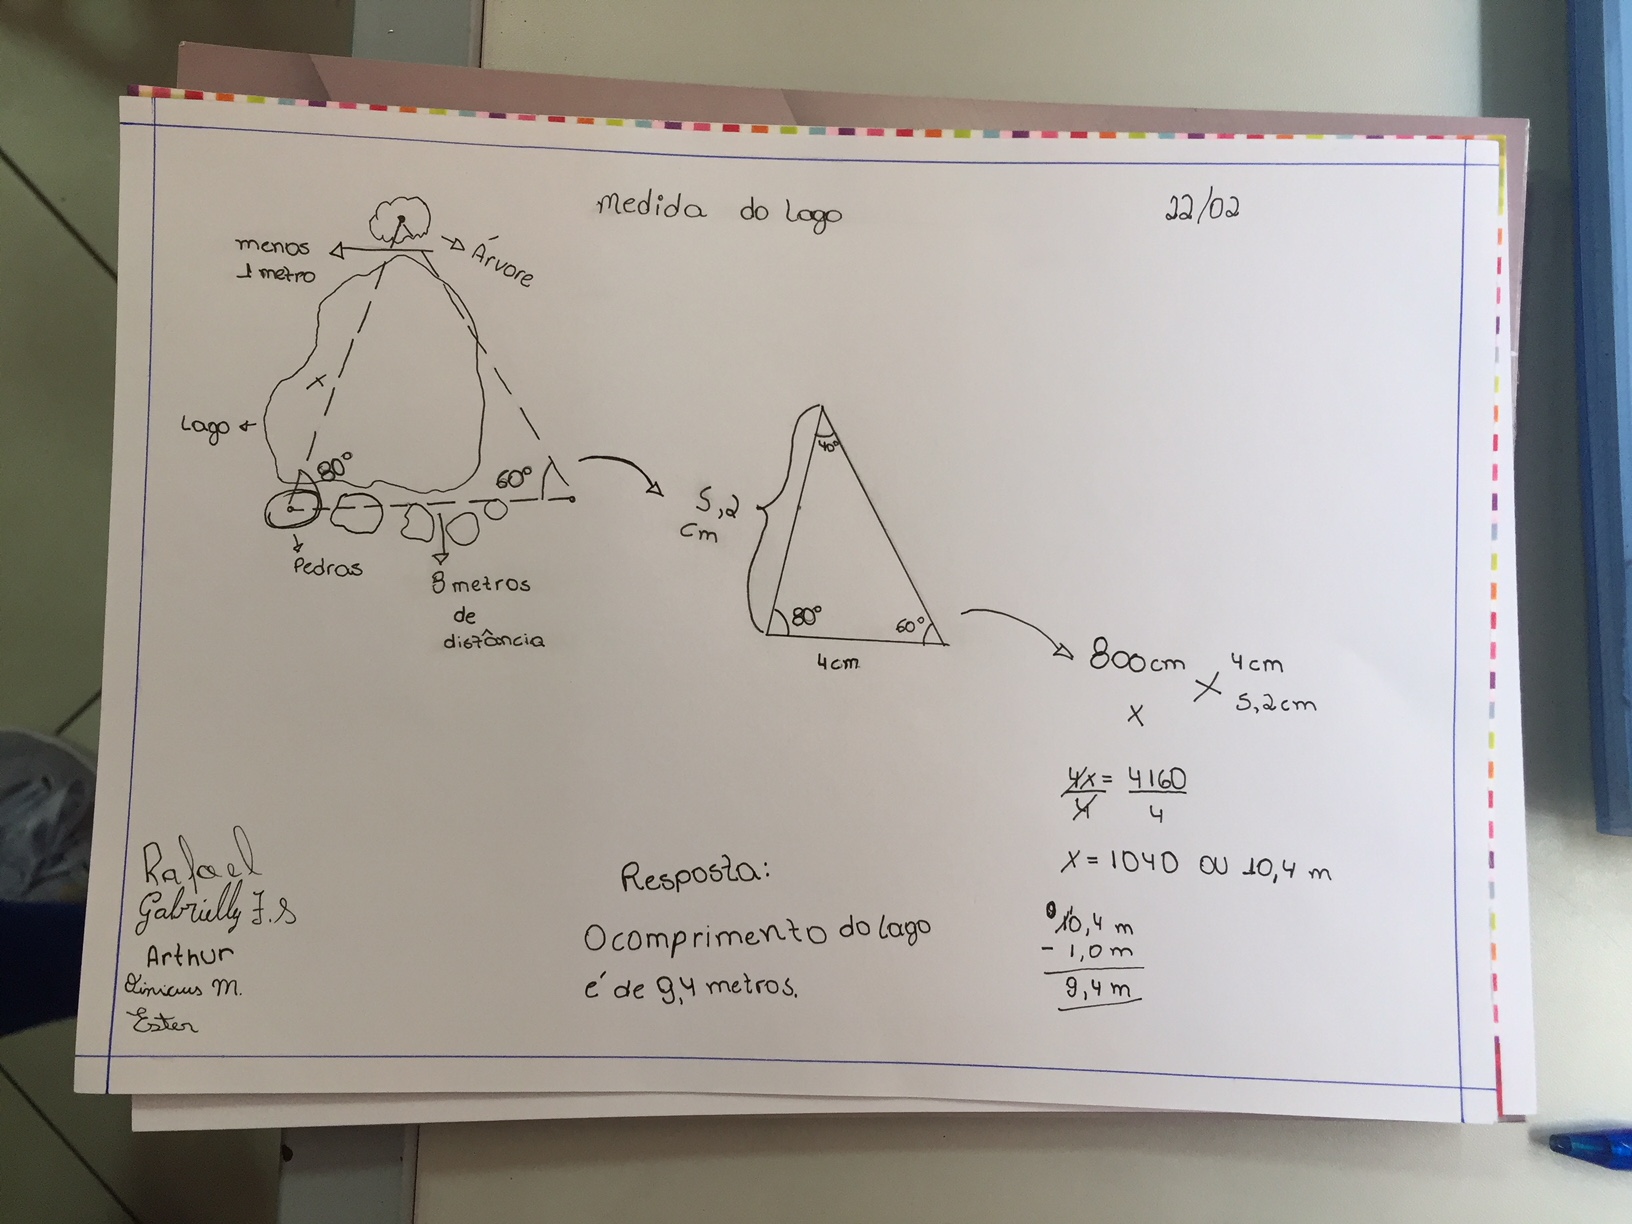 medida do lago
22/02
menos
1 metro
Árvore
Lago
x
80°
60°
Pedras
8 metros
de
distância
40°
5,2
cm
80°
60°
4cm
800cm 4cm
x 5,2cm
4x = 4160
4 4
x = 1040 ou 10,4 m
10,4 m
- 1,0 m
9,4 m
Resposta:
O comprimento do lago
é de 9,4 metros.
Rafael
Gabrielly J.S
Arthur
Vinicius M.
Ester